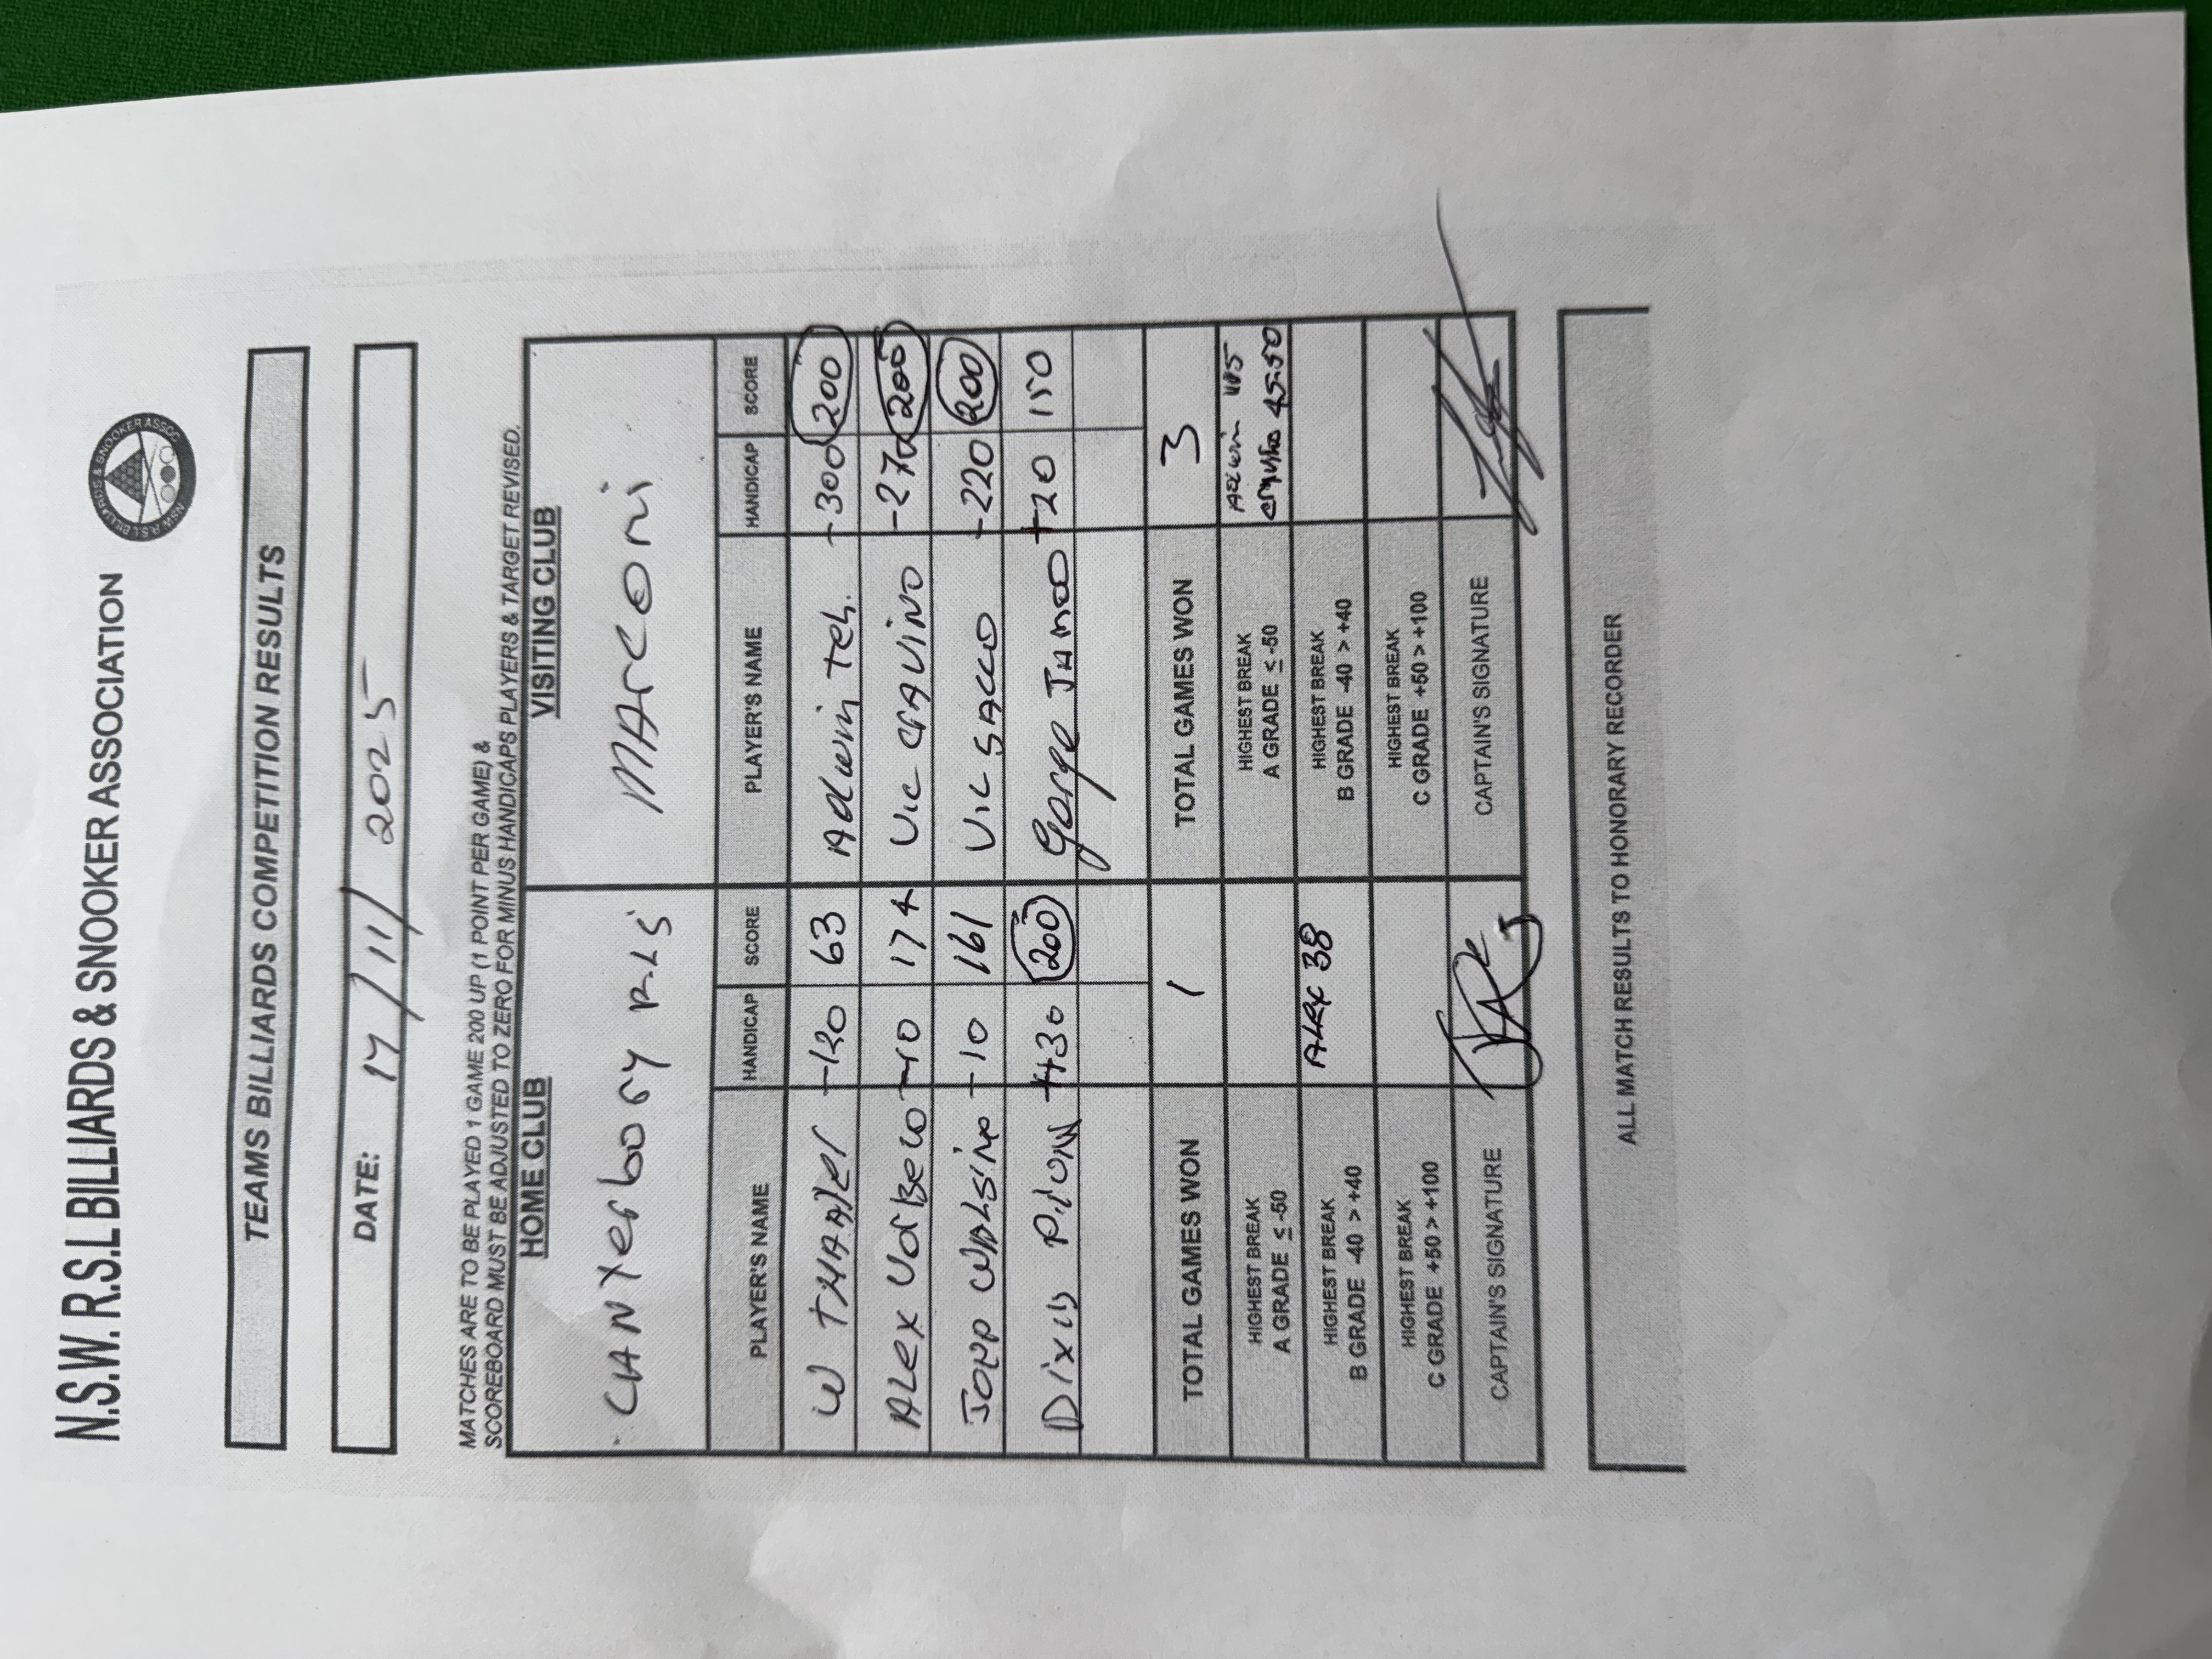 N.S.W. R.S.L BILLIARDS & SNOOKER ASSOCIATION
NSW R.S.L BILLIARDS & SNOOKER ASSOC
TEAMS BILLIARDS COMPETITION RESULTS
DATE: 17/11/2025
MATCHES ARE TO BE PLAYED 1 GAME 200 UP (1 POINT PER GAME) &
SCOREBOARD MUST BE ADJUSTED TO ZERO FOR MINUS HANDICAPS PLAYERS & TARGET REVISED.
HOME CLUB VISITING CLUB
CANTerboory MArcOni
PLAYER'S NAME HANDICAP SCORE PLAYER'S NAME HANDICAP SCORE
W THALER -120 63 Adwin Teh. -300 200
ALex -10 174 Vic GAVINO -270 200
-10 161 Vic SACCO -220 200
+30 200 George +20 150
TOTAL GAMES WON 1 TOTAL GAMES WON 3
HIGHEST BREAK
A GRADE ≤ -50
HIGHEST BREAK
A GRADE ≤ -50
45.50
HIGHEST BREAK
B GRADE -40 > +40
ALEX 38
HIGHEST BREAK
B GRADE -40 > +40
HIGHEST BREAK
C GRADE +50 > +100
HIGHEST BREAK
C GRADE +50 > +100
CAPTAIN'S SIGNATURE CAPTAIN'S SIGNATURE
ALL MATCH RESULTS TO HONORARY RECORDER